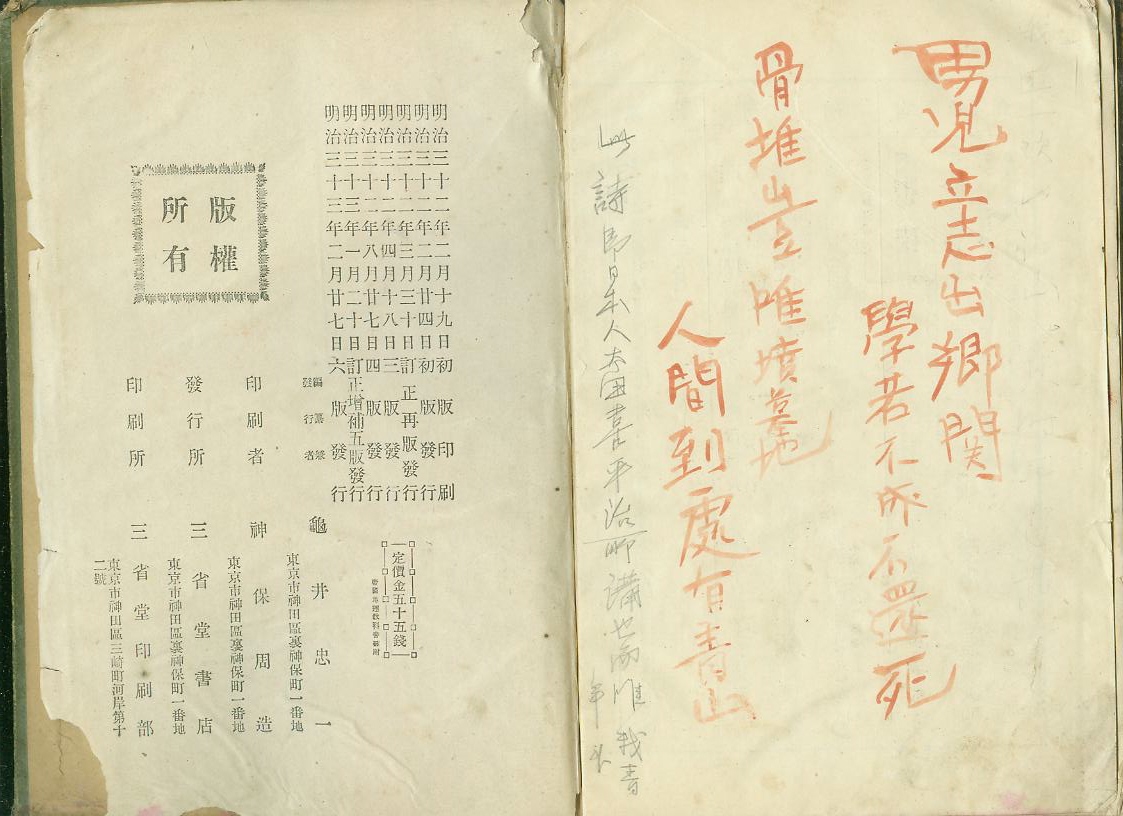 男児立志出郷関
學若不所不還死
骨堆豈唯墳墓地
人間到處有青山
此詩即日本人
喜平治
明治三十二年二月十九日初版印刷
明治三十二年二月廿四日初版發行
明治三十二年三月三十日訂正再版發行
明治三十二年四月十八日三版發行
明治三十二年八月廿七日四版發行
明治三十三年一月二十日訂正增補五版發行
明治三十三年二月廿七日六版發行
定價金五十五錢
編纂兼發行者 龜井忠一
東京市神田區裏神保町一番地
印刷者 神保周造
東京市神田區裏神保町一番地
發行所 三省堂書店
東京市神田區裏神保町一番地
印刷所 三省堂印刷部
東京市神田區三崎町河岸第十二號
版權
所有